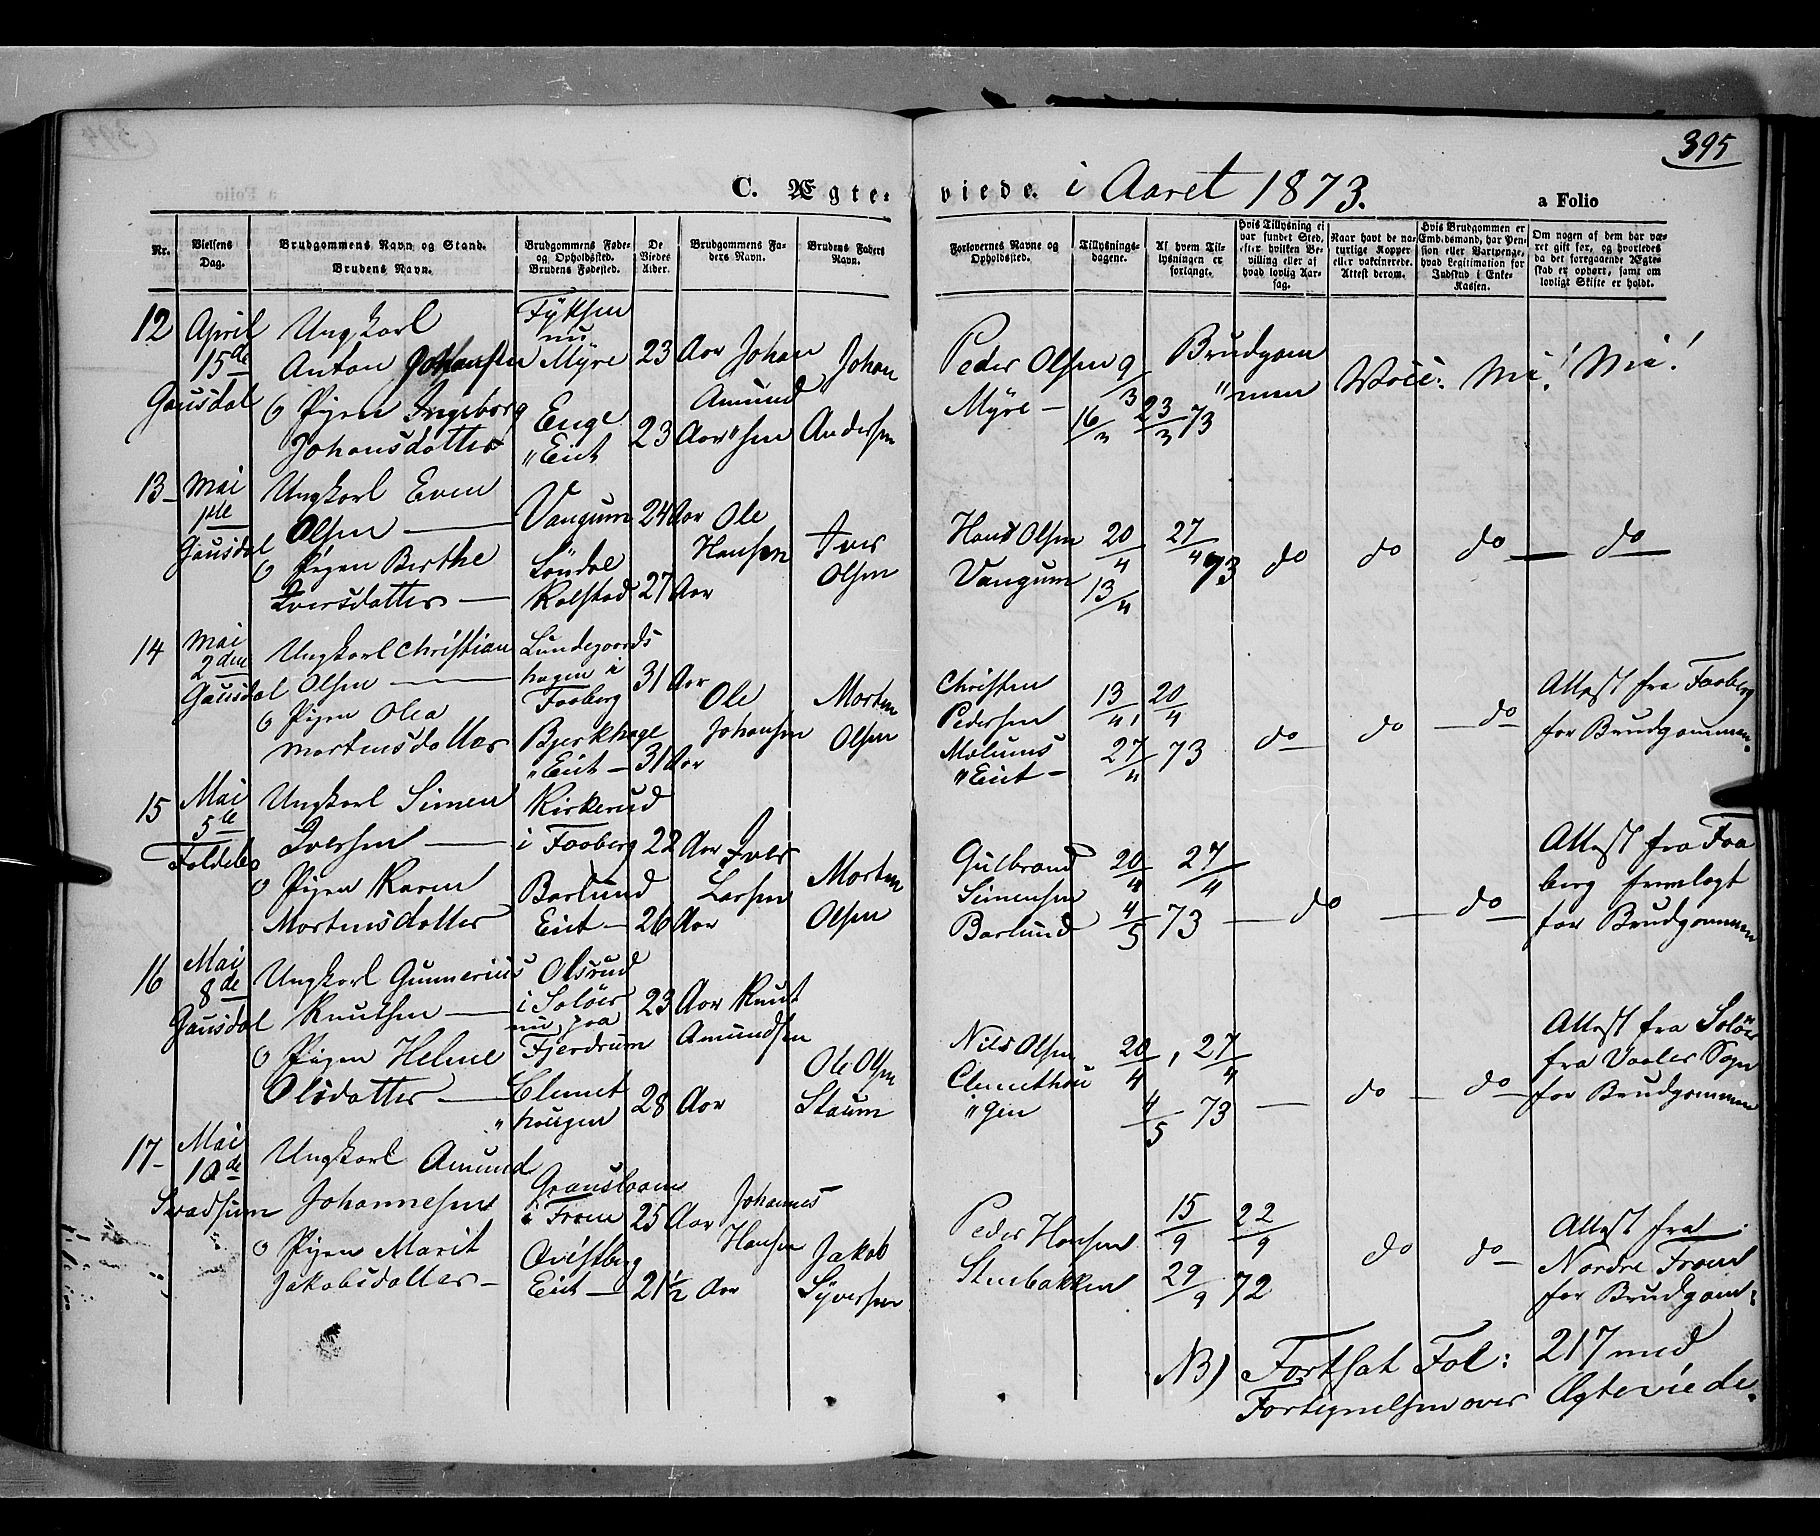 395
C. Ægte- viede. i Aaret 1873. a Folio
Nr.
Vielsens Dag.
Brudgommens Navn og Stand.
Brudens Navn.
Brudgommens Føde- og Opholdssted.
Brudens Fødested.
De Viedes Alder.
Brudgommens Faders Navn.
Brudens Faders Navn.
Forlovernes Navne og Opholdssted.
Tillysnings-dagene.
Af hvem Tillysningen er forlangt.
Hvis Tillysning ei var fundet Sted, efter hvilken Bevilling eller af hvad lovlig Aarsag.
Naar havt de naturlige Kopper eller vakcinerede. Attest derom.
Hvis Brudgommen er Embedsmand, har Pension eller Vartpenge, hvad Legitimation for Indskud i Enke-Kassen.
Om nogen af dem har været gift før, og hvorledes da det foregaaende Ægteskab er ophørt, samt om lovligt Skifte er holdt.
12 April 15de Gausdal
Ungkarl Anton Johansen
o Pigen Ingeborg Johansdatter
nu Myre 23 Aar
Enge "Eiet 23 Aar
Johan Amund"sen
Johan Andersen
Peder Olsen Myre —
9/3 16/3 23/3 73
Brudgom"men
Vacc: Nei! Nei!
13 — Mai 1ste Gausdal
Ungkarl Even Olsen —
o Pigen Berthe Iversdatter —
Vangum 24 Aar
Kalstad 27 Aar
Ole Hansen
Iver Olsen
Hans Olsen Vangum
20/4 27/4 73
13/4
do do do — do
14 Mai 2den Gausdal
Ungkarl Christian Olsen —
o Pigen Olea Mortensdatter
Lundegaards hagen i Faaberg 31 Aar
Bjerkhage "Eiet — 31 Aar
Ole Johansen
Morten Olsen
Christen Pedersen
"Eiet —
13/4, 20/4
27/4 73
do do — do
Attest fra Faaberg for Brudgommen.
15 Mai 5te
Ungkarl Simen Iversen —
o Pigen Karen Mortensdatter
Kirkerud i Faaberg 22 Aar
Barlund Eiet — 26 Aar
Iver Larsen
Morten Olsen
Gulbrand Simensen Barlund
20/4 27/4
4/5 73
— do — do
Attest fra Faaberg fremlagt for Brudgommen
16 Mai 8de Gausdal
Ungkarl Gunnerius Knutsen —
o Pigen Helene Olsdatter —
Olsrud i Soløer nu paa Fjerdrum 23 Aar
Clemet "haugen 28 Aar
Knut Amundsen
Ole Olsen Staum
Nils Olsen Clemethau "gen
20/4, 27/4
4/5 73
— do — do
Attest fra Soløer fra Vaaler Sogn for Brudgommen
17 — Mai 10de Svadsum
Ungkarl Amund Johannesen
o Pigen Marit Jakobsdatter —
i Fron 25 Aar
Qvistberg Eiet — 21 1/2 Aar
Johannes Hansen
Jakob Syversen
Peder Hansen Stenbakken
15/9 22/9
29/9 72
do do —
Attest fra Nordre Fron for Brudgom:
NB) Fortsat Fol: 217 med
Fortegnelsen over Ægteviede.